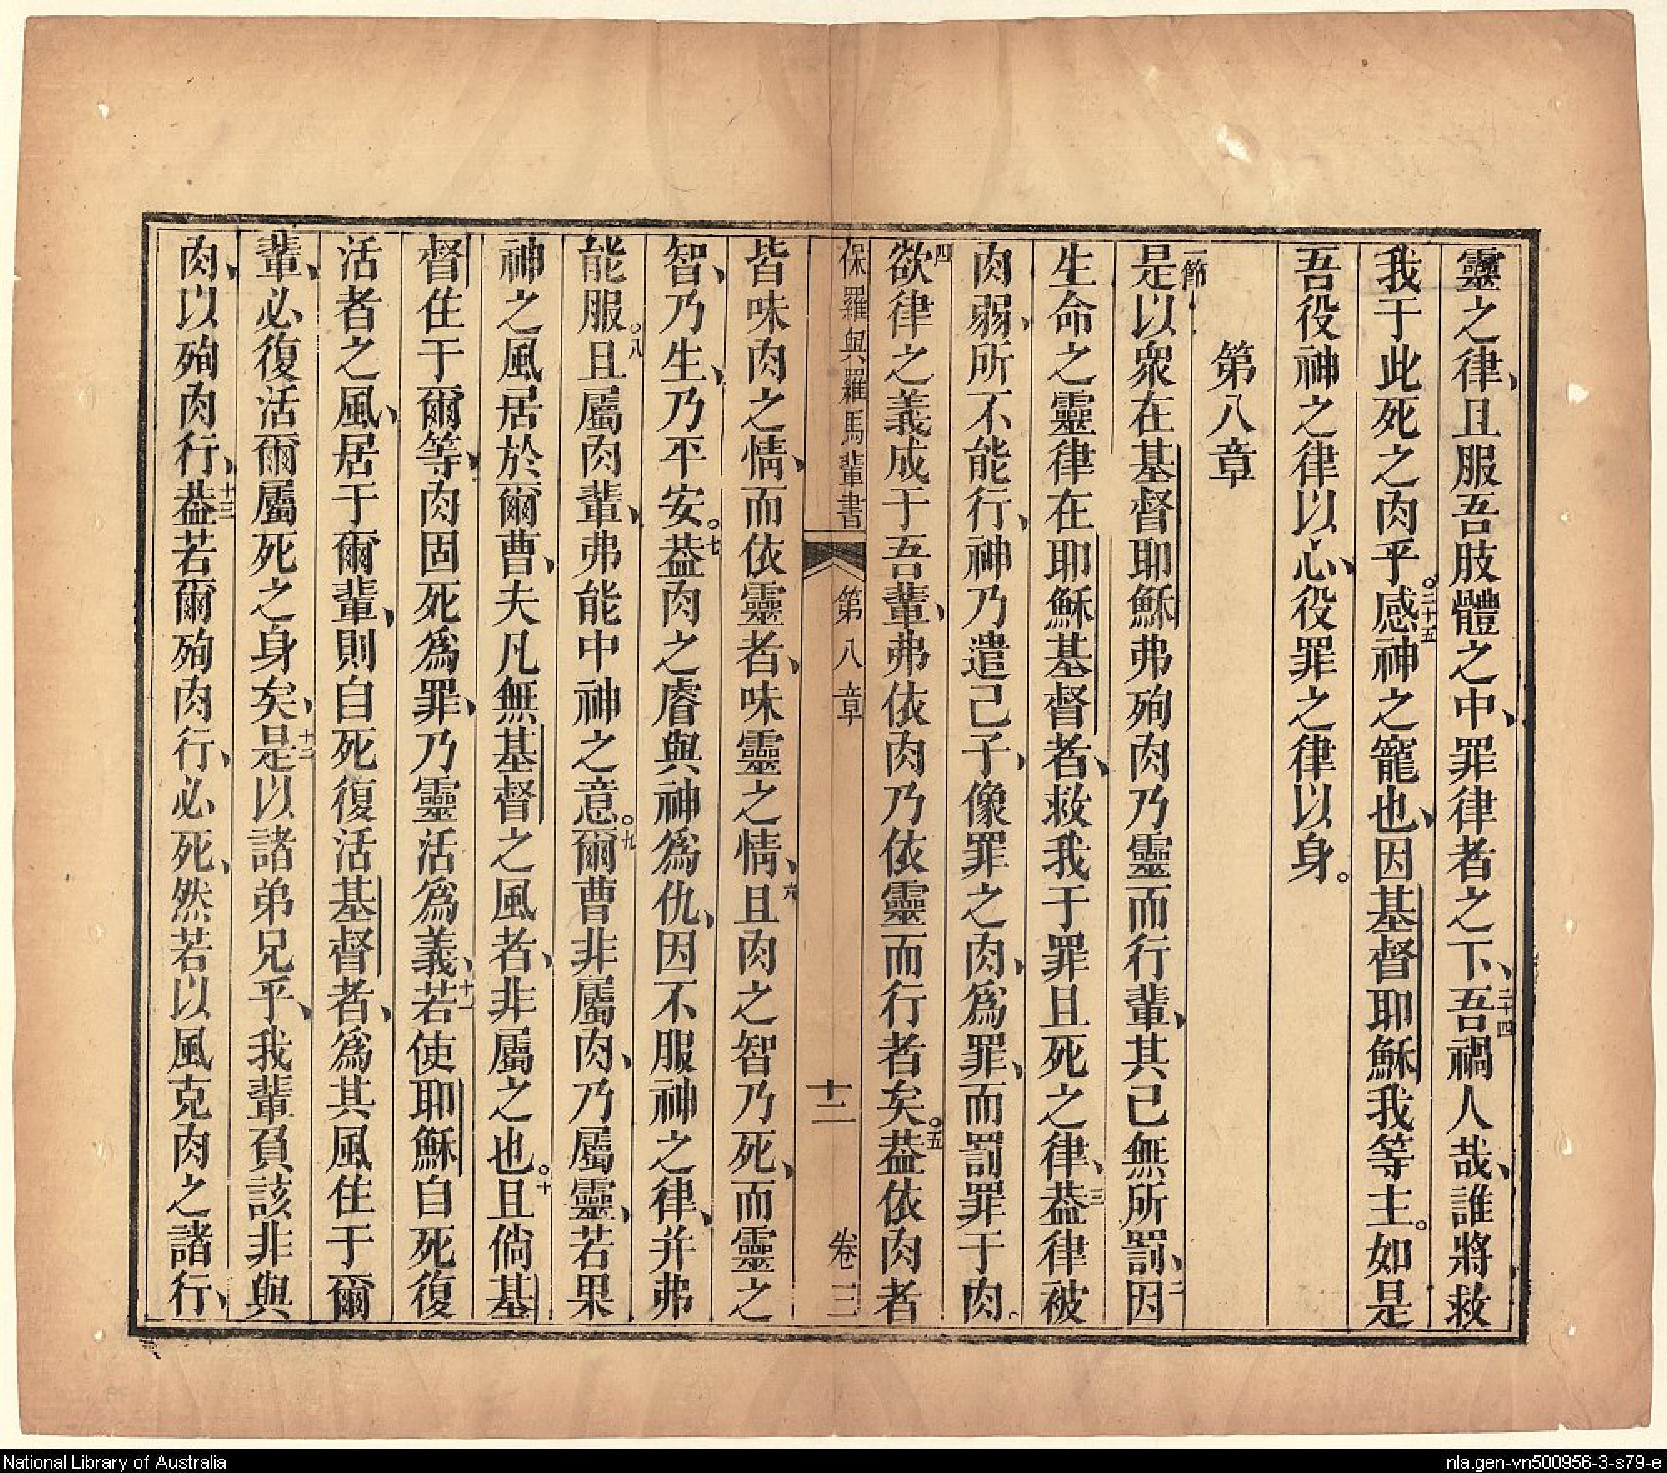 靈之律、且服吾肢體之中、罪律者之下、二十四吾禍人哉、誰將救
我于此死之肉乎。二十五感神之寵也、因基督耶穌我等主。如是
吾役神之律以心、役罪之律以身。
第八章
一節是以衆在基督耶穌弗殉肉乃靈而行輩、其已無所罰、二因
生命之靈律在耶穌基督者、救我于罪且死之律、三葢律被
肉弱、所不能行、神乃遣己子、像罪之肉、爲罪、而罰罪于肉、
四欲律之義成于吾輩、弗依肉乃依靈而行者矣。五葢依肉者
保羅與羅馬輩書 第八章 十二 卷三
皆味肉之情、而依靈者、味靈之情、六且肉之智乃死、而靈之
智、乃生、乃平安。七葢肉之睿與神爲仇、因不服神之律、并弗
能服。八且屬肉輩、弗能中神之意。九爾曹非屬肉、乃屬靈、若果
神之風居於爾曹、夫凡無基督之風者、非屬之也。十且倘基
督住于爾等、肉固死爲罪、乃靈活爲義、十一若使耶穌自死復
活者之風、居于爾輩、則自死復活基督者、爲其風住于爾
輩、必復活爾屬死之身矣、十二是以諸弟兄乎、我輩負該非與
肉、以殉肉行、十三葢若爾殉肉行、必死、然若以風克肉之諸行、
National Library of Australia
nla.gen-vn500956-3-s79-e